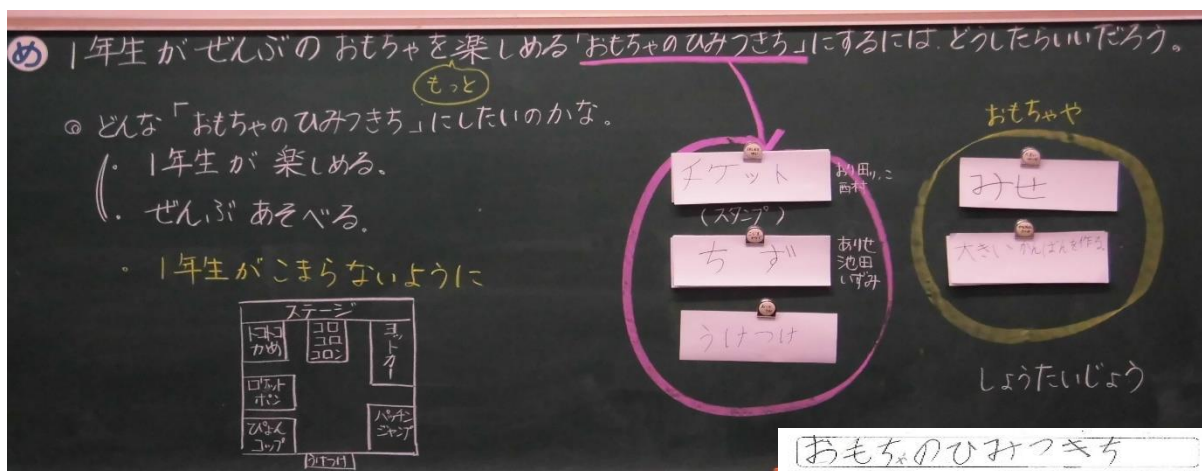 め 1年生がぜんぶのおもちゃを楽しめる「おもちゃのひみつきち」にするには、どうしたらいいだろう。
もっと
◎ どんな「おもちゃのひみつきち」にしたいのかな。
・1年生が楽しめる。
・ぜんぶあそべる。
・1年生がこまらないように
ステージ
トコトコ
かめ
コロ
コロ
コロン
ヨットカー
ロケット
ポン
ぴょん
コップ
パッチン
ジャンプ
うけつけ
チケット
西村
(スタンプ)
ちず
ありせ
池田
いずみ
うけつけ
おもちゃや
みせ
大きいかんばんを作る
しょうたいじょう
おもちゃのひみつきち